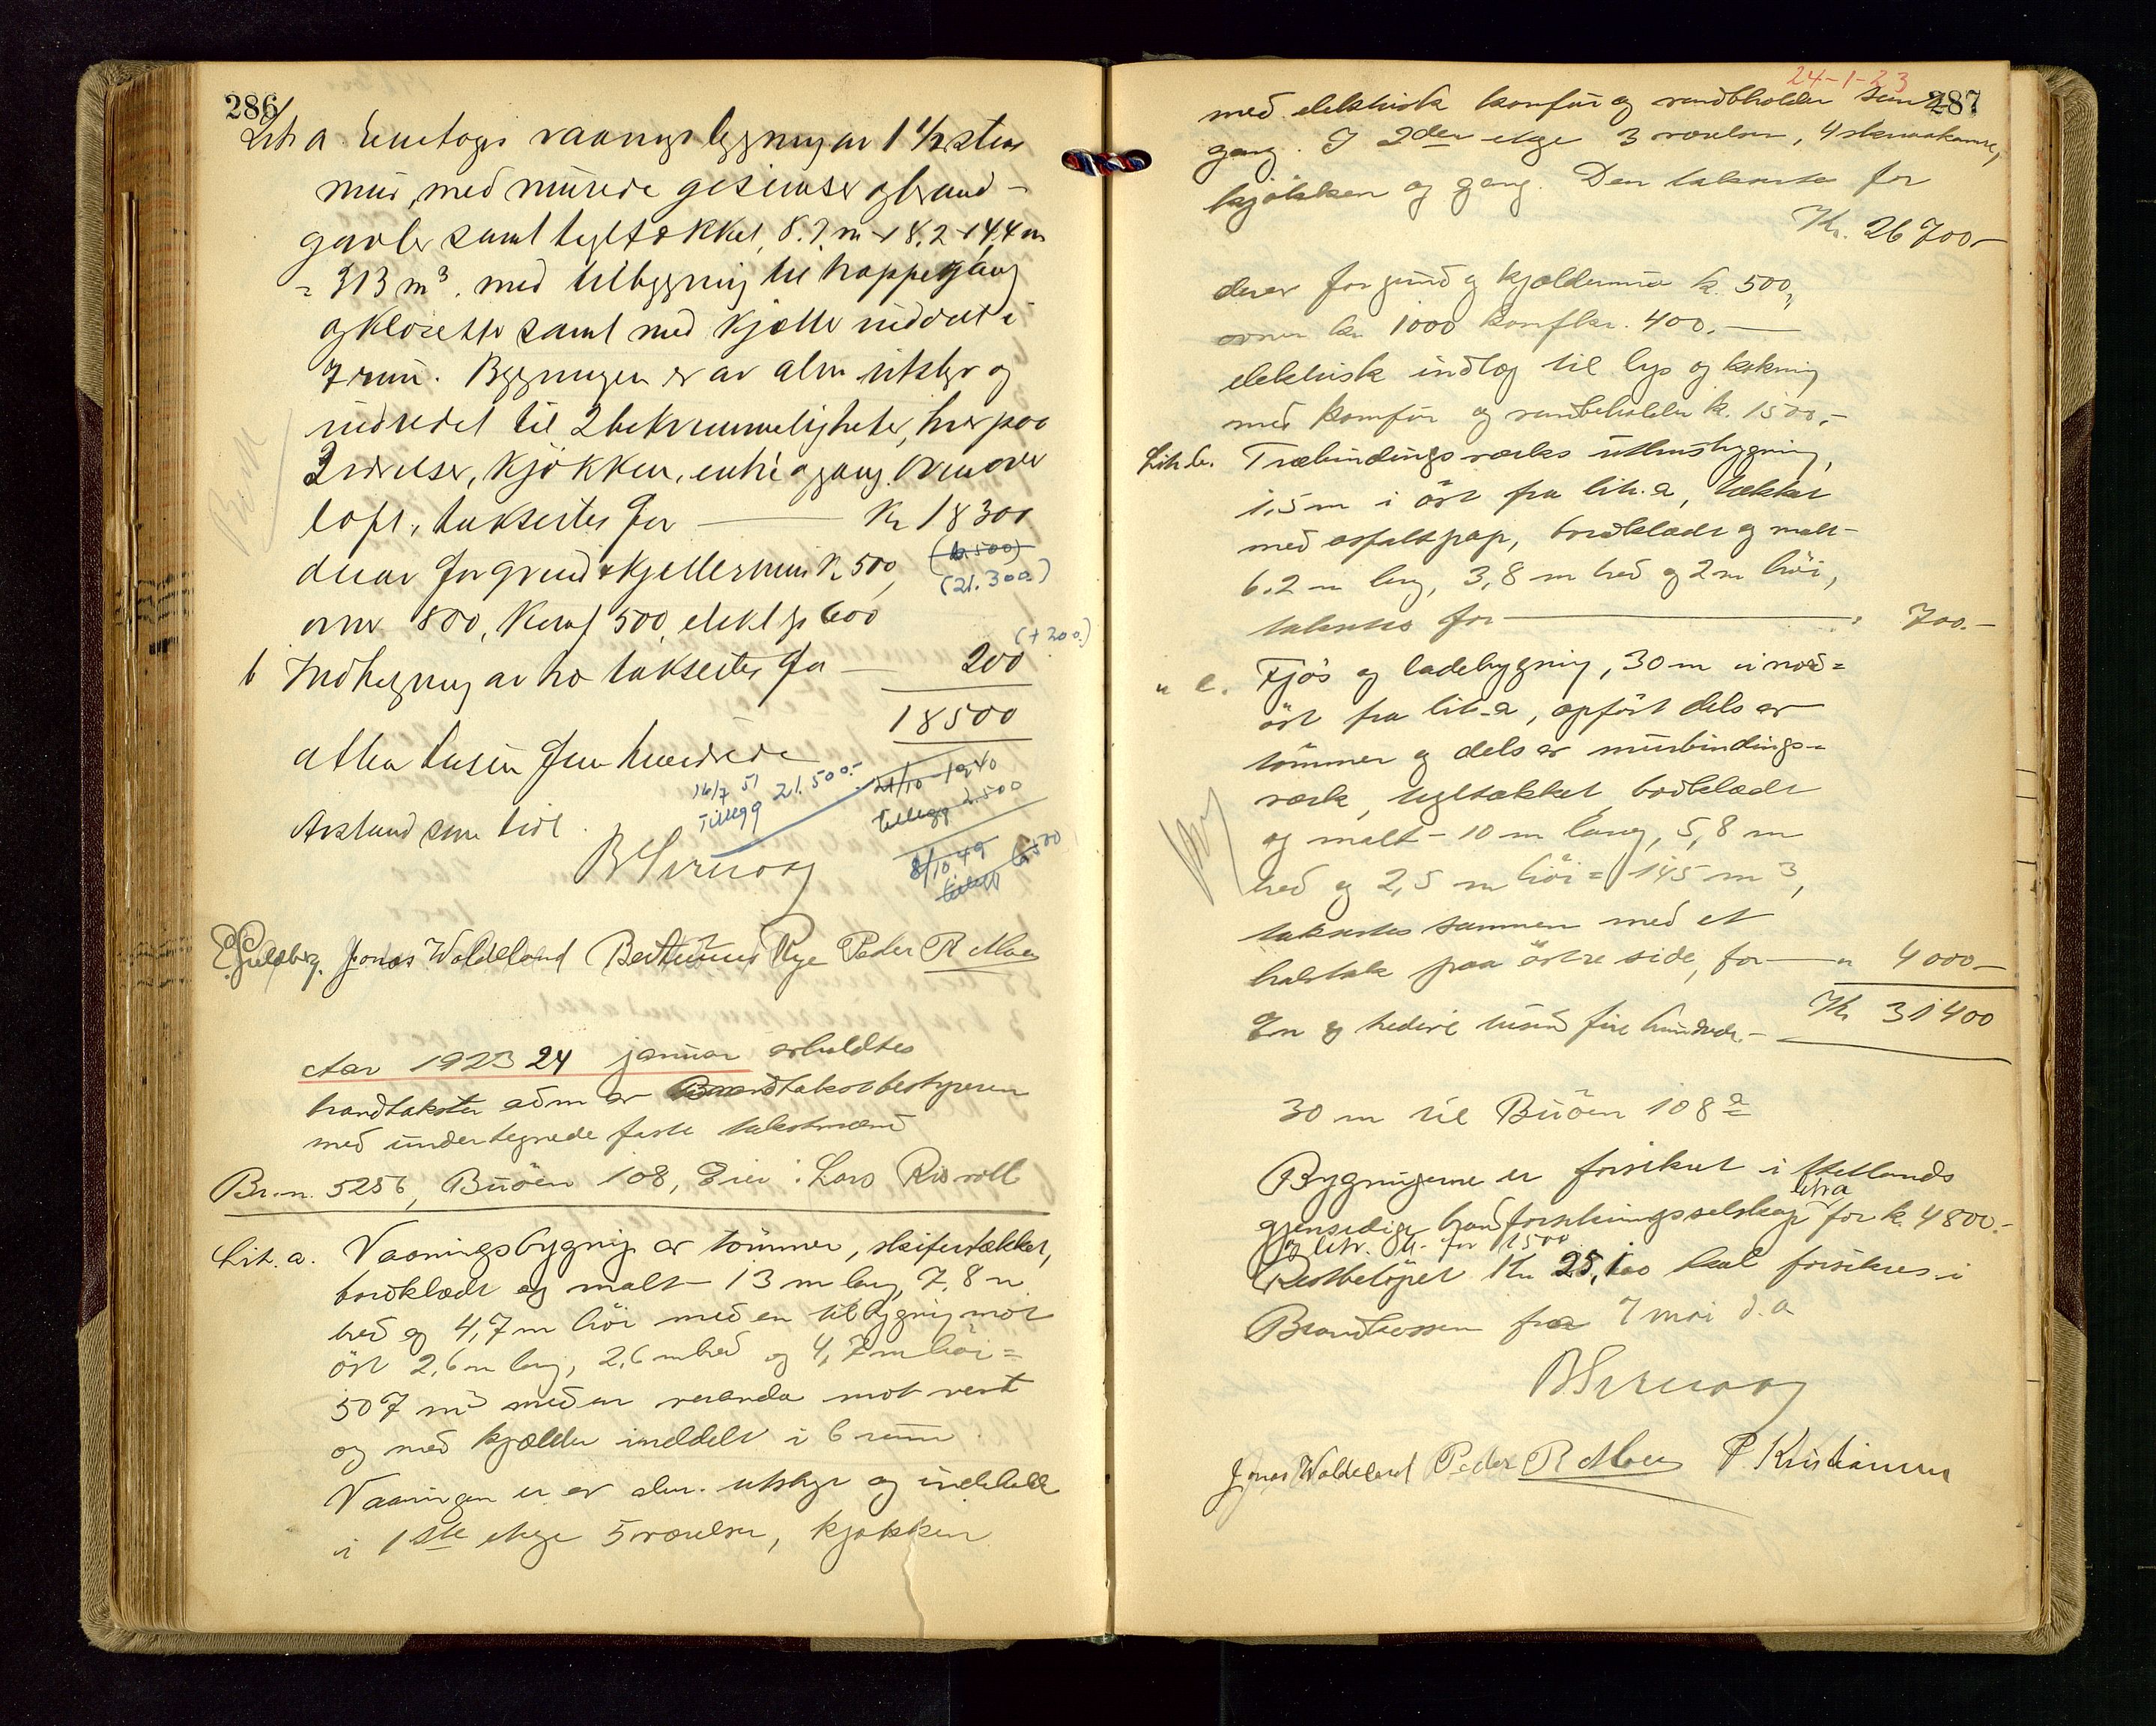 286
Lit a Enetages vaaningsbygning av 1 1/2 stens
mur, med murede gesimser og brand-
gavler samt tegltækket, 8.2 m + 8.2 + 4.4 m
= 313 m³. med tilbygning til trappegang
og klosetter samt med kjeller inddelt i
7 rum. Bygningen er av alm utstyr og
indredet til 2 bekvemmeligheter, hver paa
2 værelser, kjøkken, entre og gang. Ovenover
loft, takseres for — Kr 18300
derav for grund & kjellermur K 500, (kr 500)
(21.300.)
ovner 800, Komf 500, elekt p 600
(+ 200.)
b Indhegning av tre takseres for — 200
18500
atten tusen fem hundrede
16/7 51 21.500.-
Tillegg
21/10-1940
tillegg 2.500
Avstand som lit
8/10 49 6500
tillegg
E. Guldberg. Jonas Waldeland Bertinius Rye Peder R Moen
Aar 1923 24 januar avholdtes
brandtakster adm av Brandtakstbestyreren
med undertegnede faste takstmænd
Br.n. 5256, Buöen 108, Eier: Lars Risvoll
Lit. a. Vaaningsbygning av tömmer, skifertækket,
bordklædt og malt – 13 m lang, 7,8 m
bred og 4,7 m höi med en tilbygning mot
öst 2,6 m lang, 2,6 m bred og 4,7 m höi =
507 m³ med en veranda mot vest
og med kjælder inddelt i 6 rum.
Vaaningen er av alm. utstyr og inddelt
i 1ste etage 5 værelser, kjøkken
24-1-23
287
med elektrisk komfur og vandbeholder samt
gang. I 2den etage 3 værelser, 4 skraakamre,
kjökken og gang. Den takseres for
Kr. 26700–
derav for grund og kjældermur k. 500,
ovner kr. 1000 komf kr. 400. —
elektrisk indlæg til lys og kokning
med komfur og vandbeholder k. 1500,-
Lit. b. Træbindingsverks uthusbygning,
1,5 m i öst fra lit. a, tækket
med asfaltpap, bordklædt og malt –
6.2 m lang, 3,8 m bred og 2 m höi,
takseres for — 700.–
" c. Fjös og ladebygning, 30 m i nord=
öst fra lit. a, opfört dels av
tömmer og dels av murbindings-
verk, tegltækket, bordklædt
og malt – 10 m lang, 5,8 m
bred og 2,5 m höi = 145 m³,
takseres sammen med et
halvtak paa östre side, for — " 4000–
En og tredive tusind fire hundrede.– Kr 31400
30 m til Buöen 108 a
Bygningerne er forsikret i Hetlands
litra a
gjensidige brandforsikringsselskap for k. 4800.–
og litr. b. for 1500
Restbelöpet Kr 25,100 skal forsikres i
Brandkassen fra 7 mai d.a
Jonas Waldeland Peder R Moen P. Kristiansen